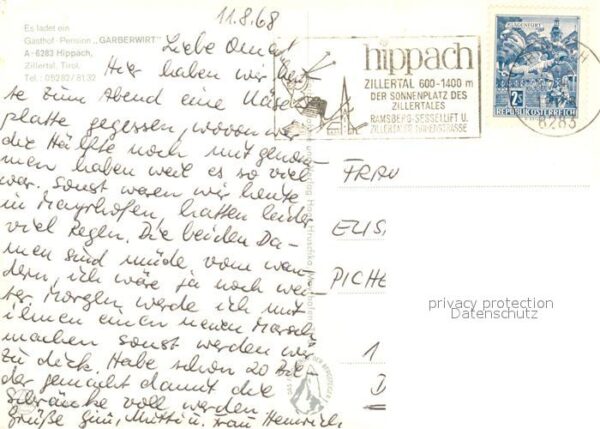 11.8.68
Es ladet ein
Gasthof - Pension „GARBERWIRT"
A-6283 Hippach,
Zillertal, Tirol.
Tel.: 05282/8132
Liebe Oma!
Hier haben wir heu-
te zum Abend eine Käse-
platte gegessen, wovon wir
die Hälfte noch mit genom-
men haben weil es so viel
war. Sonst waren wir heute
in Mayrhofen, hatten leider
viel Regen. Die beiden Da-
men sind müde vom wan-
dern, ich wäre ja noch wei-
ter. Morgen werde ich mit
ihnen einen neuen Marsch
machen sonst werden wir
zu dick. Habe schon 20 Bil-
der gemacht damit die
Schränke voll werden.
Grüße Mutti u. Frau Heinrich.
hippach
ZILLERTAL 600-1400 m
DER SONNENPLATZ DES
ZILLERTALES
RAMSBERG-SESSELLIFT U.
ZILLERTALER HÖHENSTRASSE
KLAGENFURT
2S
REPUBLIK ÖSTERREICH
6283
FRAU
ELIS
PICHE
1
D
privacy protection
Datenschutz